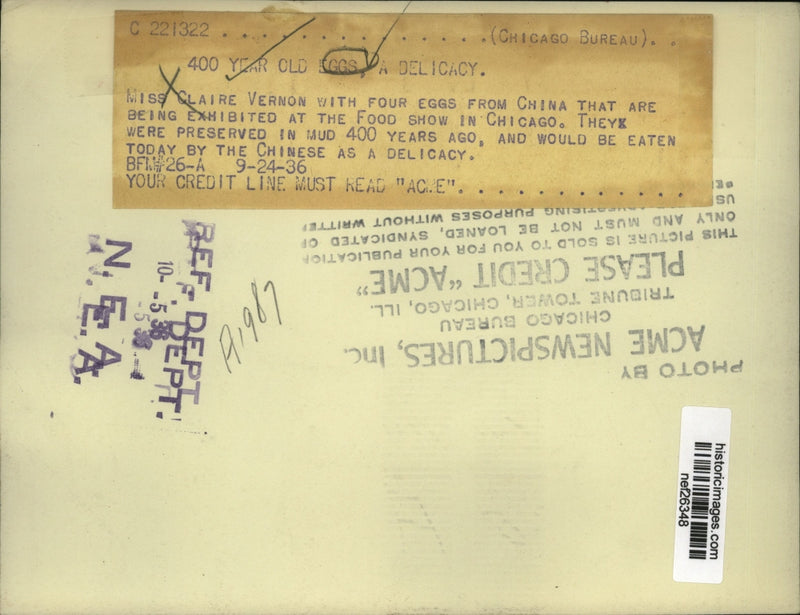 C 221322 . . . . . . . . . . . . . . . (CHICAGO BUREAU). . .
400 YEAR OLD EGGS, A DELICACY.
MISS CLAIRE VERNON WITH FOUR EGGS FROM CHINA THAT ARE
BEING EXHIBITED AT THE FOOD SHOW IN CHICAGO. THEYX
WERE PRESERVED IN MUD 400 YEARS AGO, AND WOULD BE EATEN
TODAY BY THE CHINESE AS A DELICACY.
BFM#26-A 9-24-36
YOUR CREDIT LINE MUST READ "ACME". . . . . . . . . . . . . .
PHOTO BY
ACME NEWSPICTURES, Inc.
CHICAGO BUREAU
TRIBUNE TOWER, CHICAGO, ILL.
PLEASE CREDIT "ACME"
THIS PICTURE IS SOLD TO YOU FOR YOUR PUBLICATION
ONLY AND MUST NOT BE LOANED, SYNDICATED OR
ADVERTISING PURPOSES WITHOUT WRITTEN
REF. DEPT.
N. E. A.
A1987
historicimages.com
nef26348